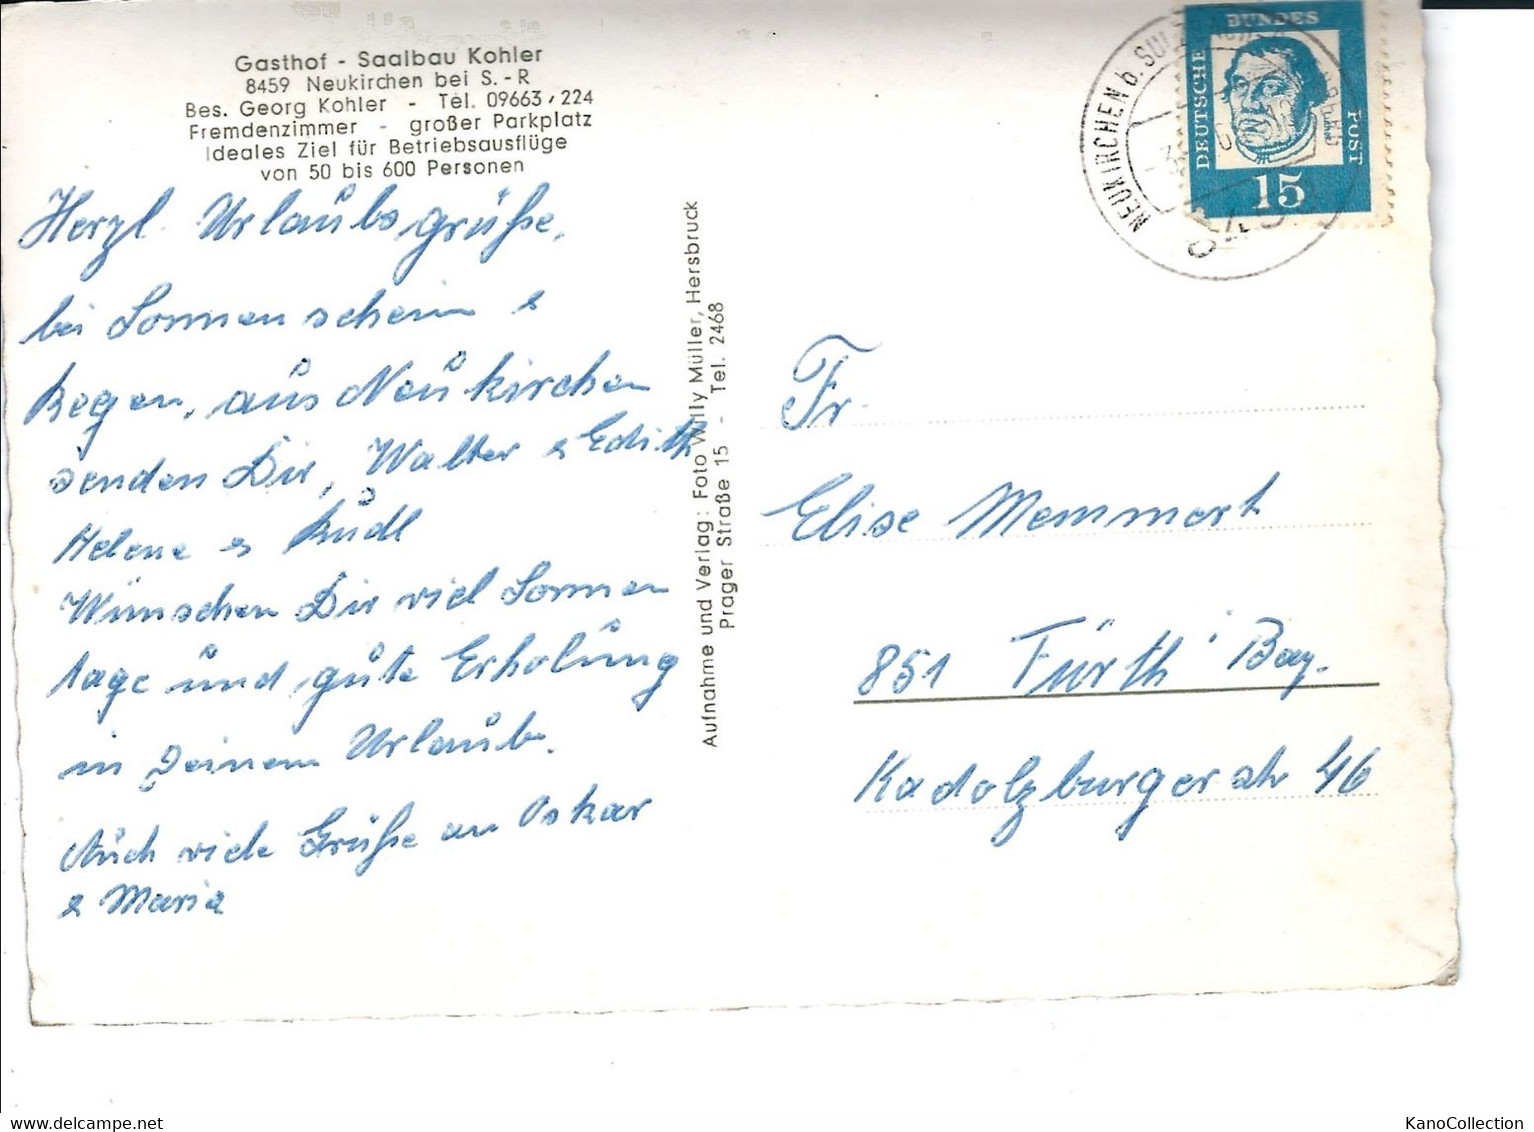 Gasthof - Saalbau Kohler
8459 Neukirchen bei S.-R
Bes. Georg Kohler - Tel. 09663/224
Fremdenzimmer - großer Parkplatz
Ideales Ziel für Betriebsausflüge
von 50 bis 600 Personen
Herzl. Urlaubsgrüße,
bei Sonnenschein &
Regen, aus Neukirchen
senden Dir, Walter & Edith
Helene & Rudl
Wünschen Dir viel Sonnen
tage und gute Erholung
in Deinem Urlaub.
Auch viele Grüße an Oskar
& Maria
Aufnahme und Verlag: Foto Willy Müller, Hersbruck
Prager Straße 15 - Tel. 2468
NEUKIRCHEN b. SULZBACH
DEUTSCHE
BUNDES
POST
15
Fr.
Elise Memmert
851 Fürth Bay.
Kadolzburgerstr 46
KanoCollection